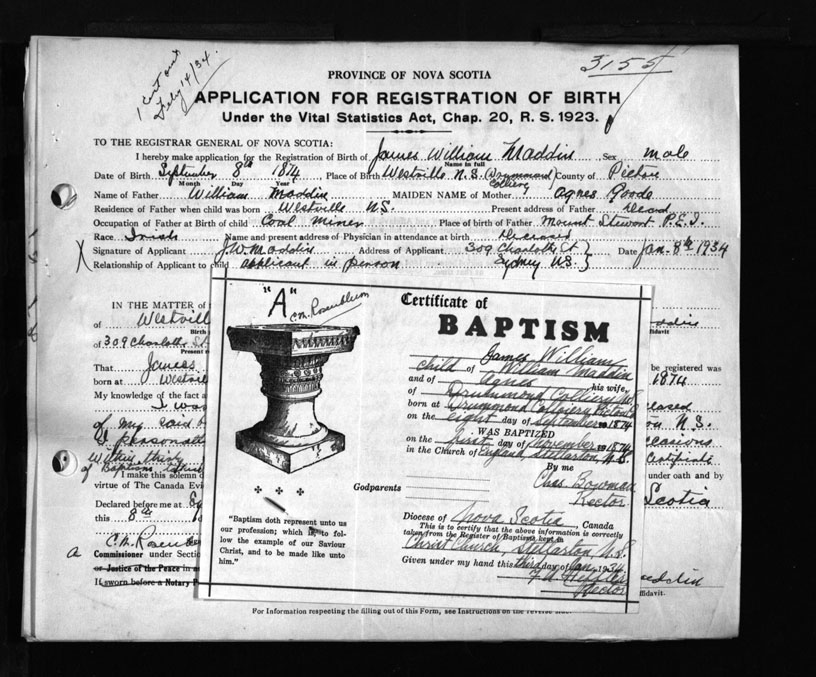 1 Cert out
July 14/34
3155
PROVINCE OF NOVA SCOTIA
APPLICATION FOR REGISTRATION OF BIRTH
Under the Vital Statistics Act, Chap. 20, R. S. 1923.
TO THE REGISTRAR GENERAL OF NOVA SCOTIA:
I hereby make application for the Registration of Birth of James William Maddin Sex male
Name in full
Date of Birth September 8th 1874 Place of Birth Westville N.S. (Drummond Colliery) County of Pictou
Month Day Year
Name of Father William Maddin MAIDEN NAME of Mother Agnes Goode
Residence of Father when child was born Westville NS. Present address of Father
Occupation of Father at Birth of child Coal Miner Place of Birth of Father Mount Stewart P.E.I.
Race Irish Name and present address of Physician in attendance at birth Deceased
X Signature of Applicant J.W. Maddin Address of Applicant 309 Charlotte St } Date Jan. 8th 1934
Relationship of Applicant to child applicant in person Sydney N.S. }
IN THE MATTER of
of Westvill
Birth
of 309 Charlotte St
Present
That James
born at Westvill
My knowledge of the fact a
I was
of my said
I personall
within
of Baptism
I make this solemn
virtue of The Canada Evi
Declared before me at Sy
this 8th
C.M. Rosenb
a Commissioner under Sectio
or Justice of the Peace in a
If sworn before a Notary P
"A"
C.M. Rosenblum
"Baptism doth represent unto us
our profession; which is, to fol-
low the example of our Saviour
Christ, and to be made like unto
him."
Certificate of
BAPTISM
James William
child of William Maddin
and of Agnes his wife,
of Drummond Colliery N.S.
born at Drummond Colliery Pictou
on the eight day of September 1874
WAS BAPTIZED
on the first day of November 1874
in the Church of England Stellarton, N.S.
By me
Chas. Bowman
Rector
Godparents
Diocese of Nova Scotia, Canada
This is to certify that the above information is correctly
taken from the Register of Baptisms kept in
Christ Church, Stellarton N.S.
Given under my hand this third day of Jan. 1934
Rector
Maddin
ffidavit
be registered was
1874
N.S.
Certificate
under oath and by
Scotia
Maddin
fidavit.
For Information respecting the filling out of this Form, see Instructions on the reverse side.